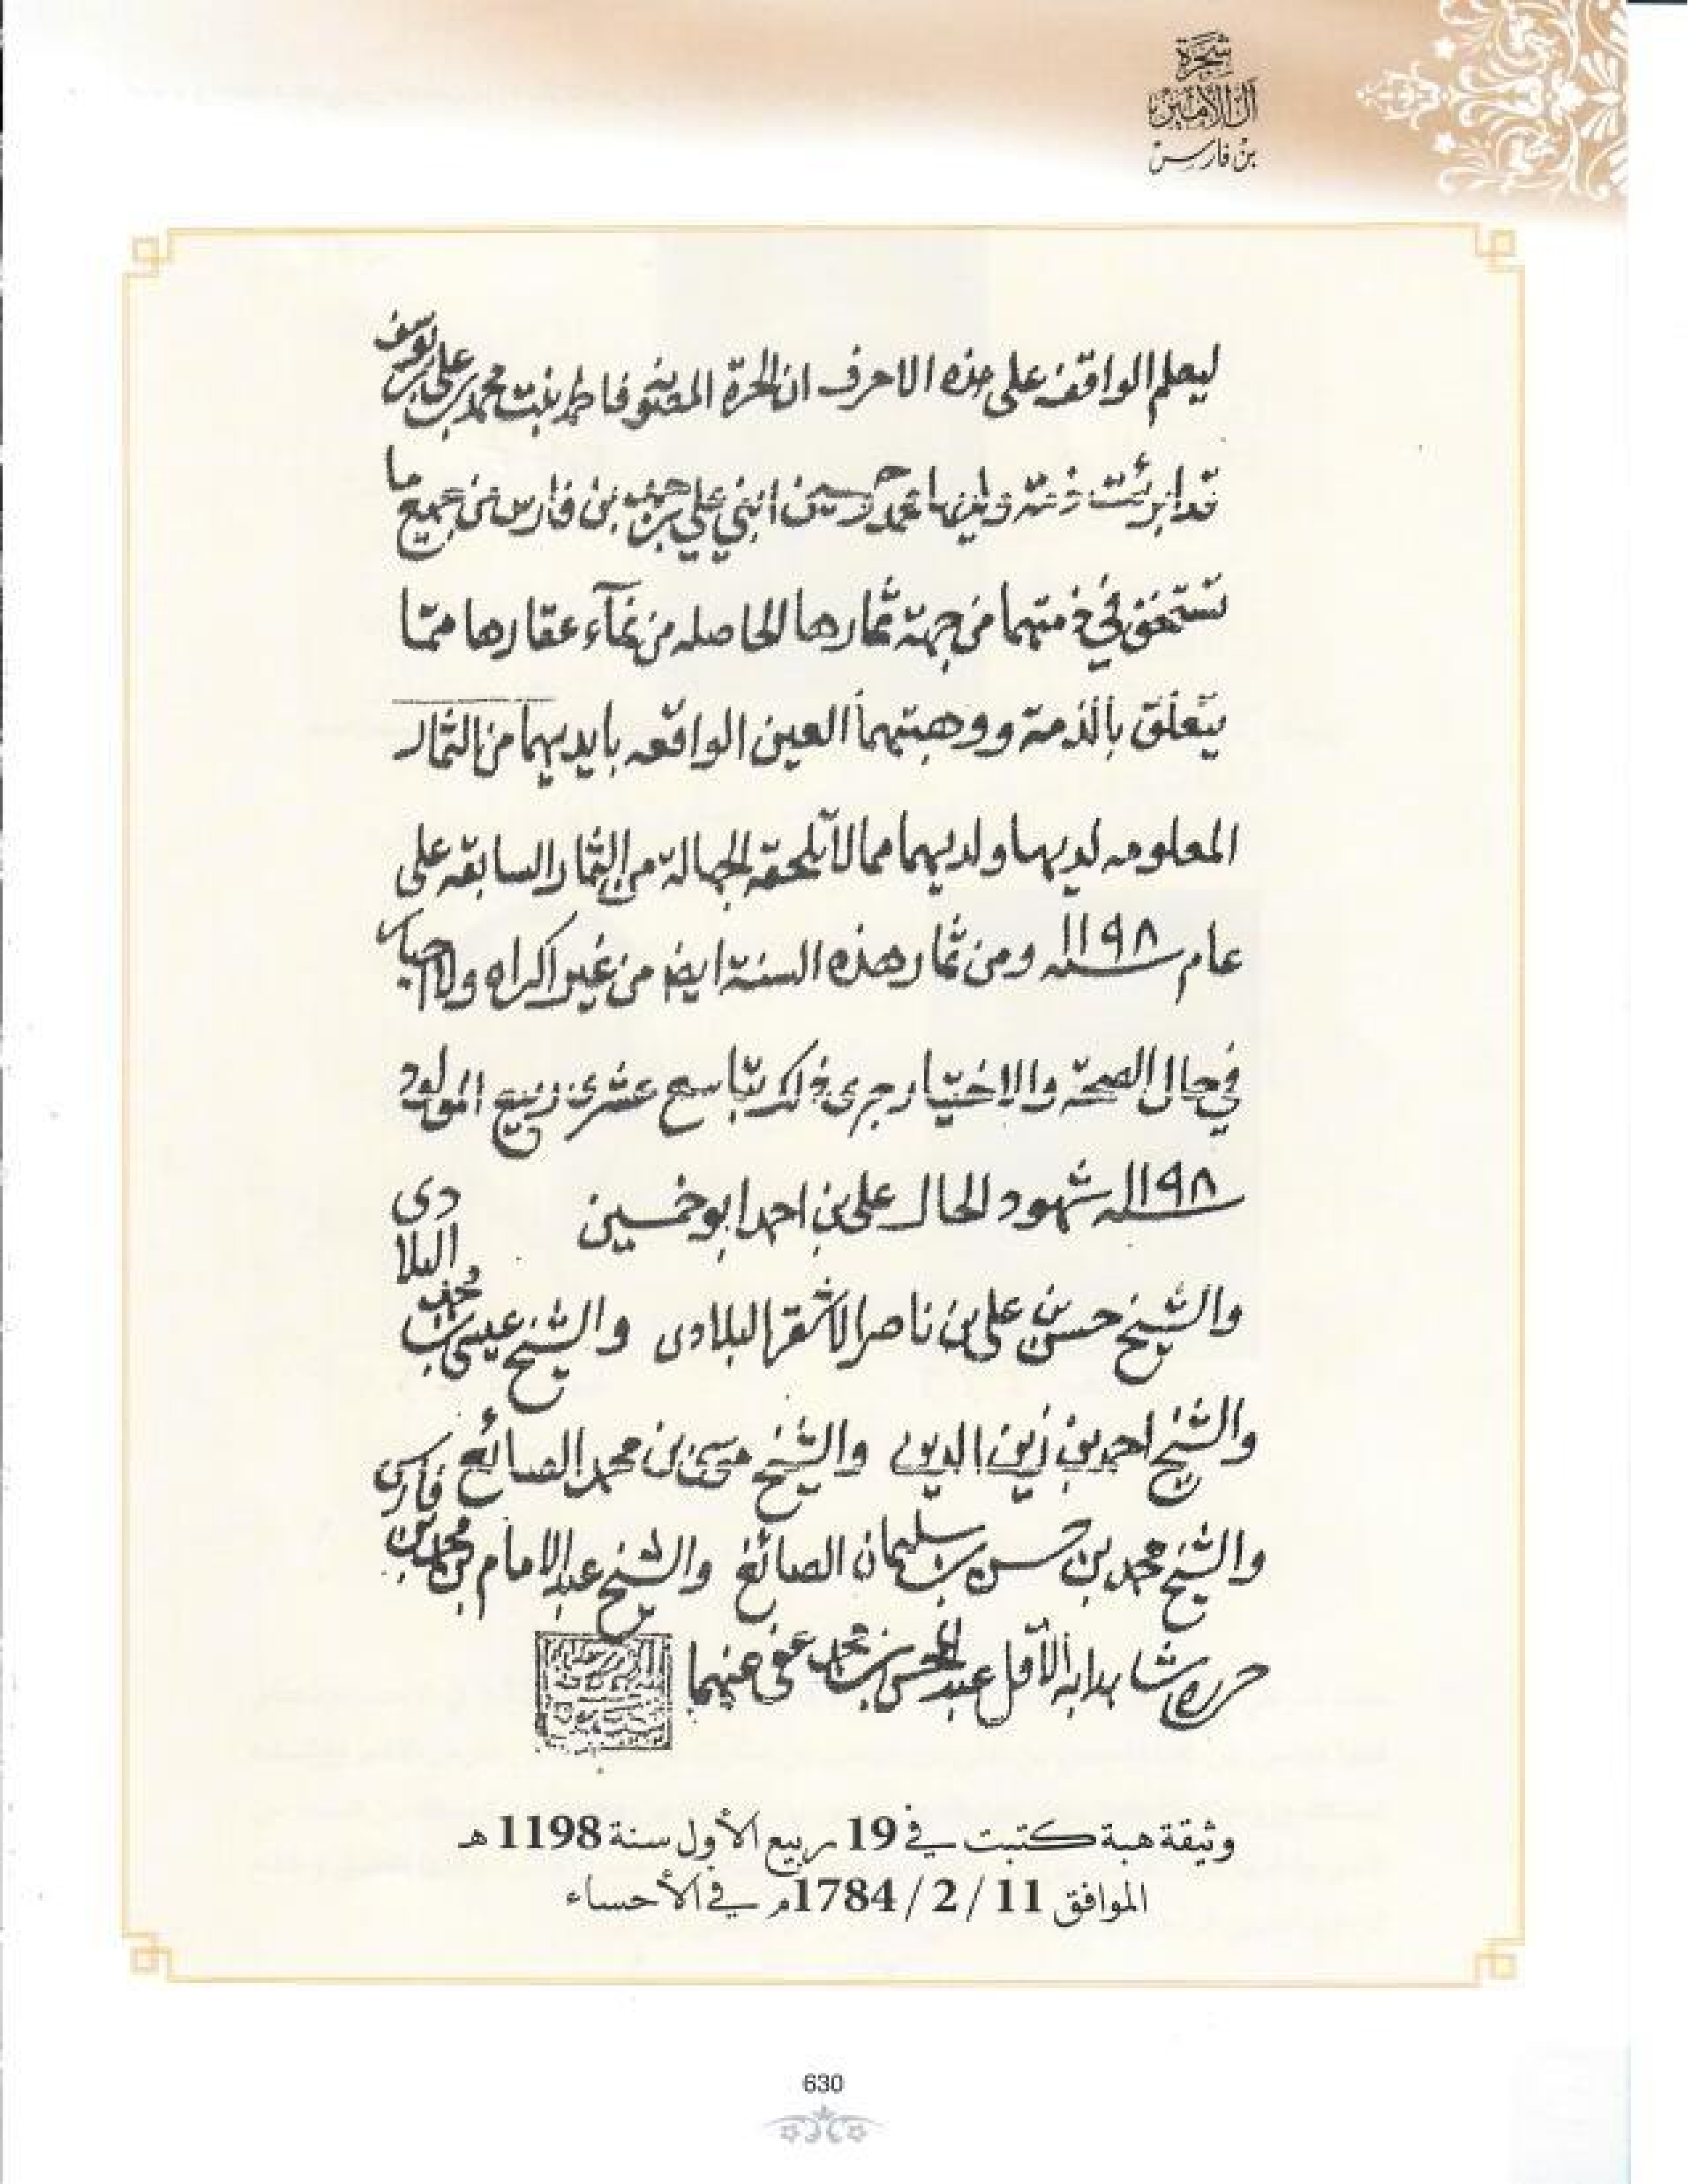 شجرة
آل الأمير
بن فارس
ليعلم الواقف على هذه الاحرف ان الحرة المصونه فاطمه بنت محمد بن علي بن يوسف
قد ابرئت ذمة ولديها محمد حسين ابني علي بن فارس من جميع ما
تستحق في ذمتهما من جهة ثمارها الحاصله من نمآء عقارها ممّا
يتعلق بالذمة ووهبتهما العين الواقعه بايديهما من الثمار
المعلومه لديها ولديهما مما لا تلحقه الجهالة من الثمار السابقه على
عام سنة ١١٩٨ ومن ثمار هذه السنة ايضا من غير اكراه ولا اجبار
في حال الصحة والاختيار جرى ذلك بتاسع عشرى ربيع المولود
سنة ١١٩٨ شهود الحال علي بن احمد ابوخمسين
والشيخ حسن بن علي بن ناصر الاشقر البلادى والشيخ عيسى بن البلادى
والشيخ احمد بن زين الدين والشيخ موسى بن محمد الصائغ
والشيخ محمد بن حسن بن سليمان الصائغ والشيخ عبد الامام بن محمد بن فارس
حرره شاهدا به الأقل عبد المحسن بن محمد عفى عنهما
وثيقة هبة كتبت في 19 ربيع الأول سنة 1198 هـ
الموافق 11 / 2 / 1784م في الأحساء
630